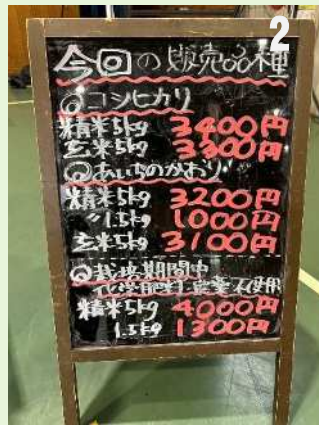 2
今回の販売品種
◎コシヒカリ
精米5kg 3400円
玄米5kg 3300円
◎あいちのかおり
精米5kg 3200円
〃1.5kg 1000円
玄米5kg 3100円
◎栽培期間中
化学肥料・農薬不使用
精米5kg 4000円
1.5kg 1300円